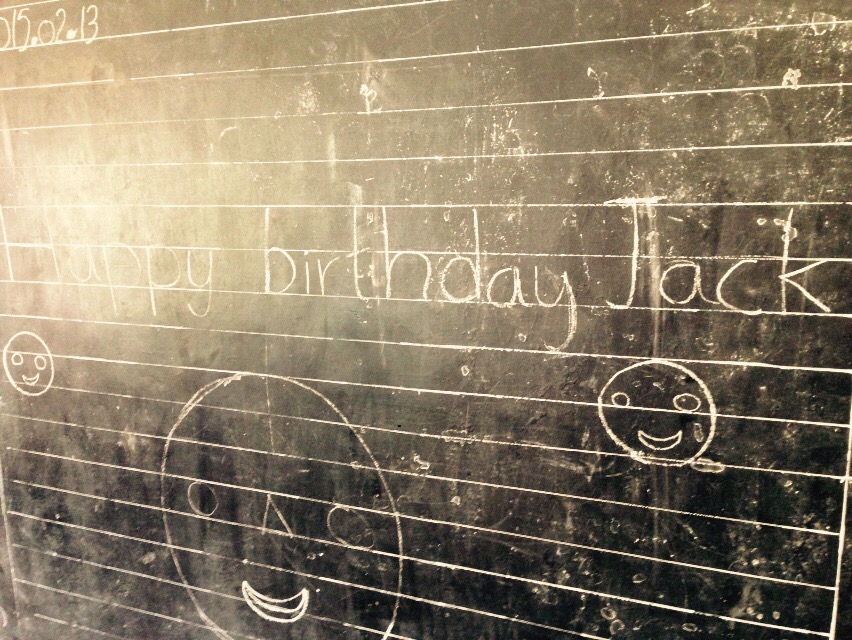 015.02.13
Happy birthday Jack